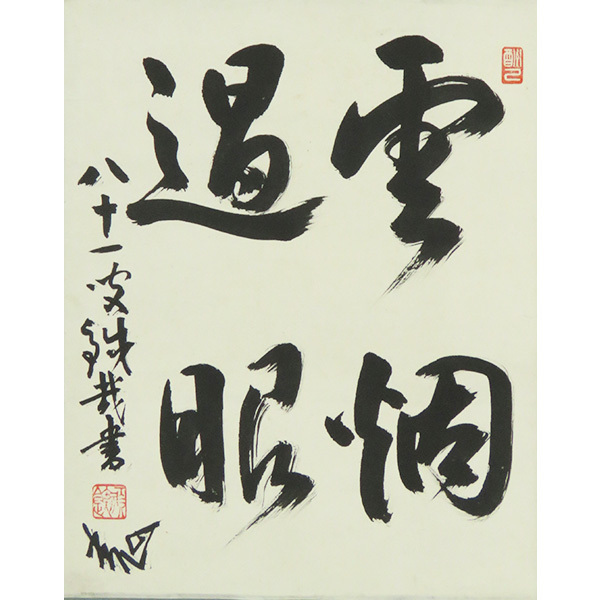 雲烟
過眼
八十一叟鉄哉書